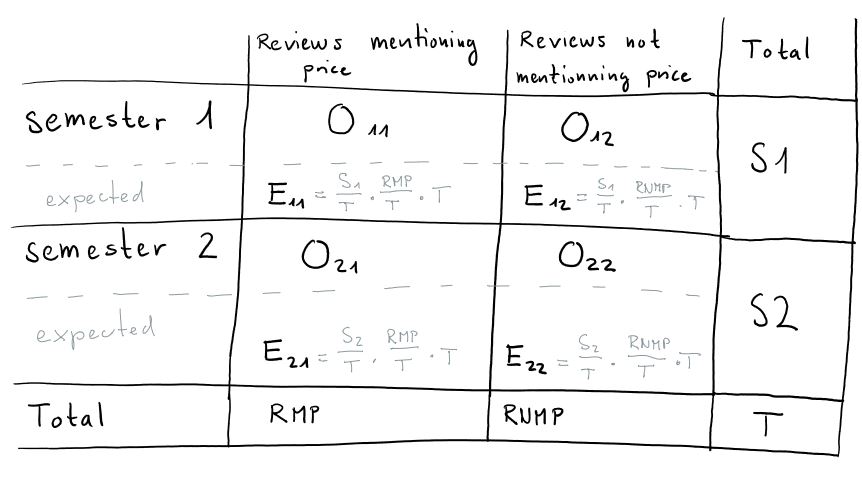 Reviews mentioning price
Reviews not mentionning price
Total
semester 1
O11
O12
S1
expected
E11 = S1/T · RMP/T · T
E12 = S1/T · RNMP/T · T
semester 2
O21
O22
S2
expected
E21 = S2/T · RMP/T · T
E22 = S2/T · RNMP/T · T
Total
RMP
RNMP
T